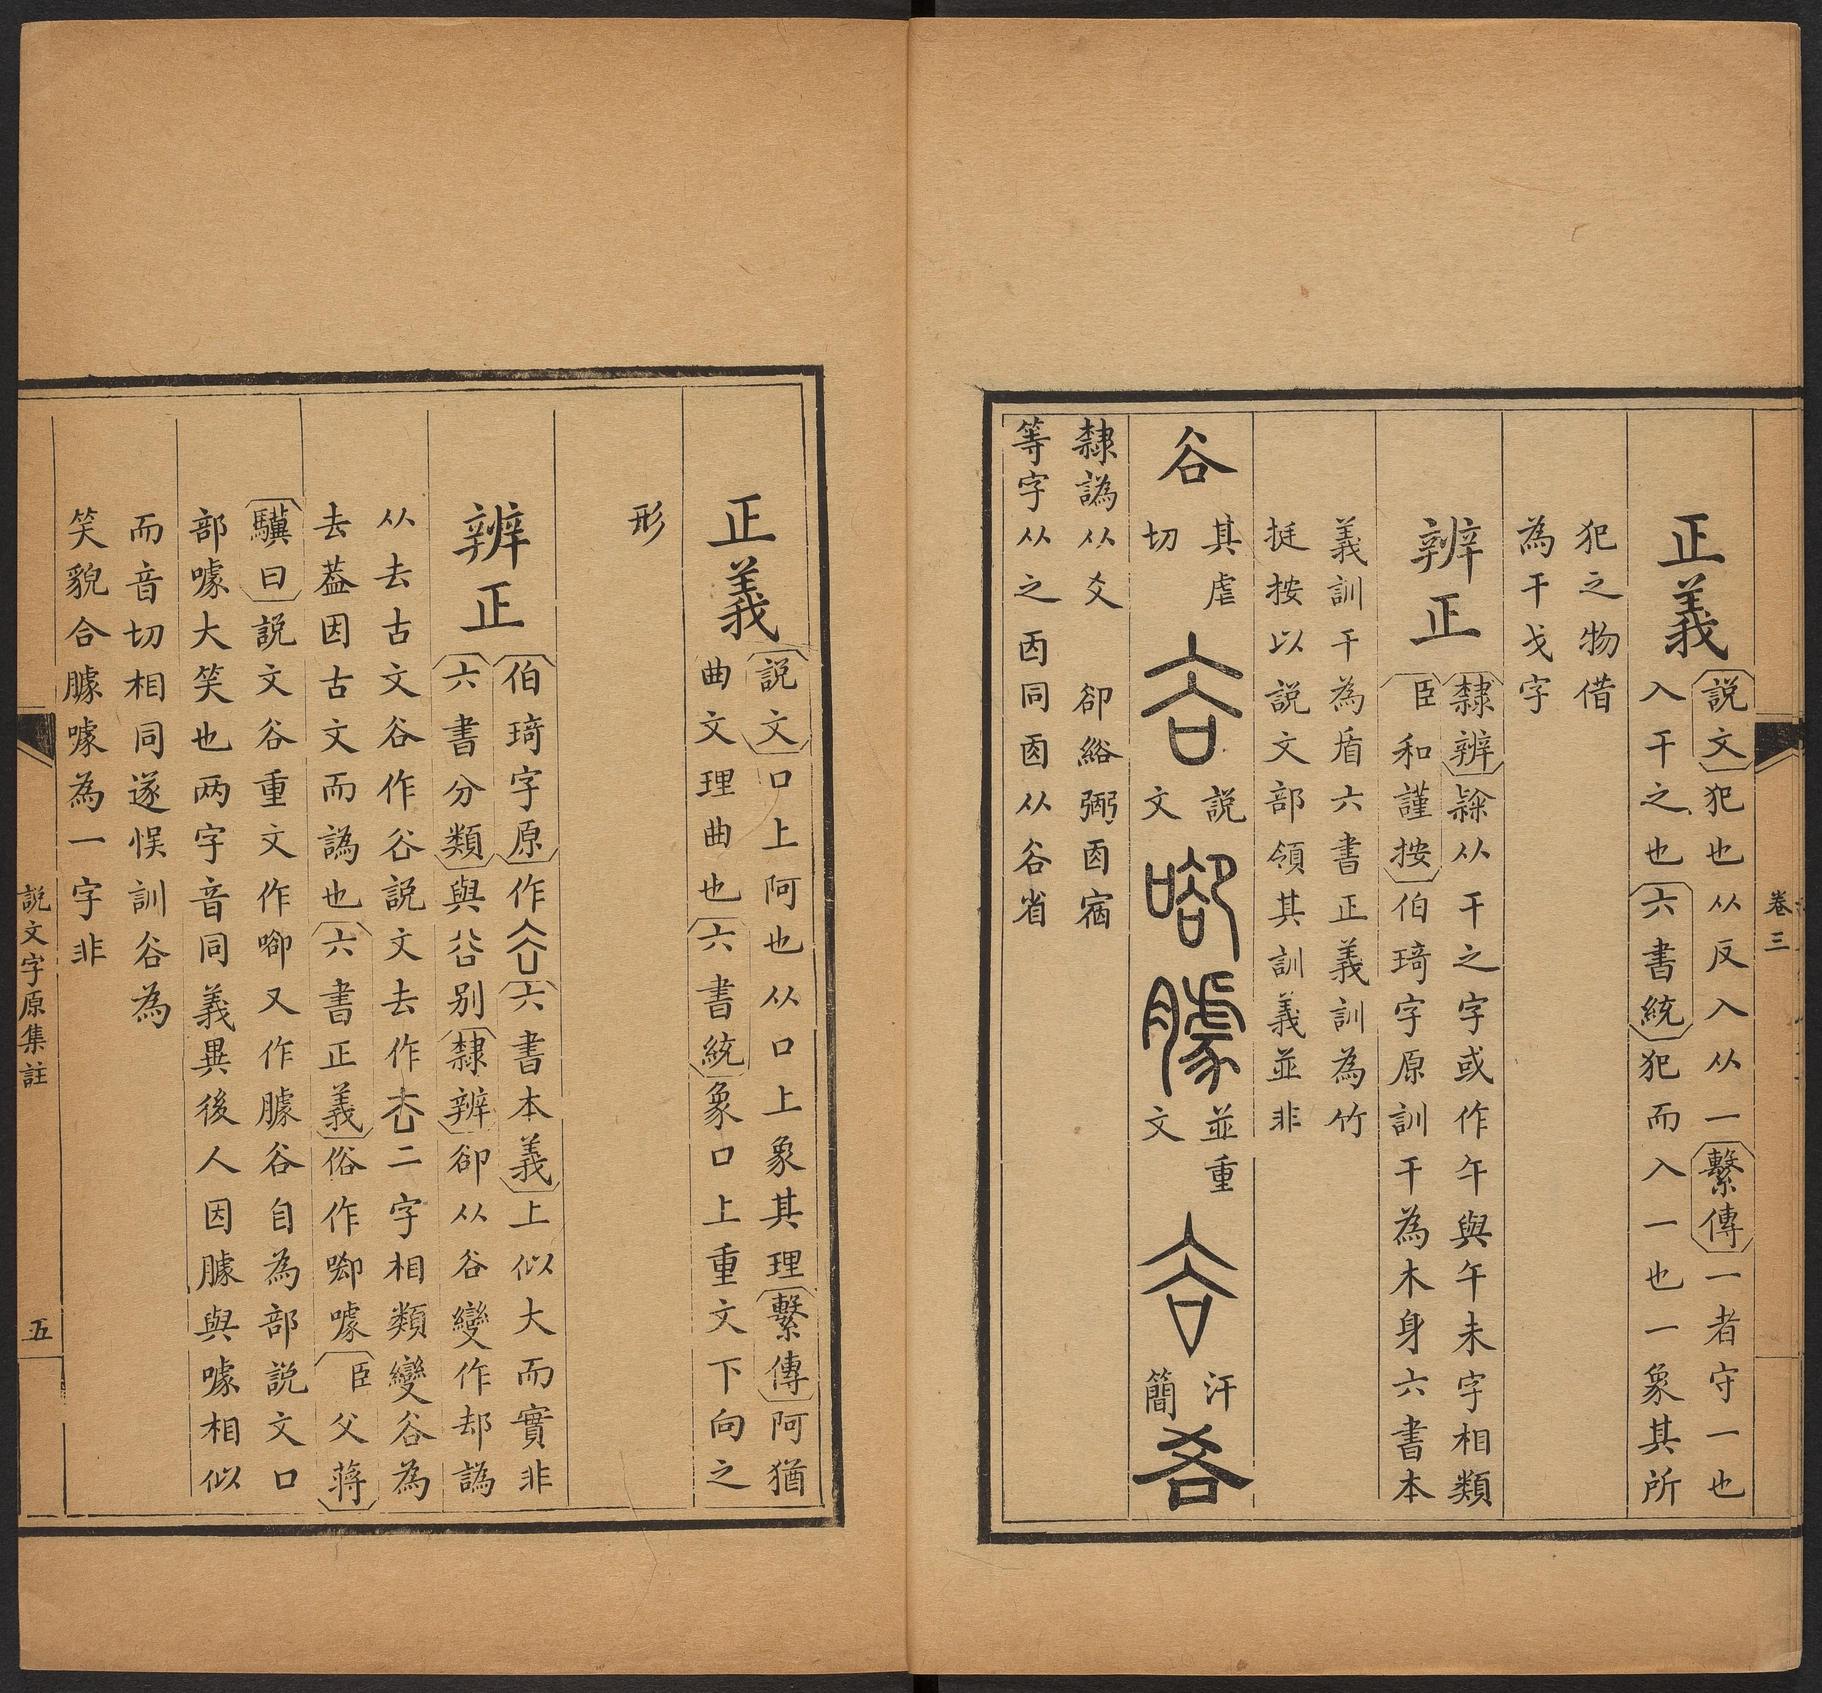 卷三
正義
説文犯也从反入从一繫傳一者守一也
入干之也六書統犯而入一也一象其所
犯之物借
為干戈字
辨正
隸辨䍃从干之字或作午與午未字相類
臣和謹按伯琦字原訓干為木身六書本
義訓干為盾六書正義訓為竹
挺按以説文部領其訓義並非
谷
其虐
切
説
文
並重
文
汗
簡
隸譌从爻 卻綌弻㐁宿
等字从之㐁同囪从谷省
正義
説文口上阿也从口上象其理繫傳阿猶
曲文理曲也六書統象口上重文下向之
形
辨正
伯琦字原作谷六書本義上似大而實非
六書分類與㕣别隸辨卻从谷變作却譌
从去古文谷作㕣説文去作厺二字相類變谷為
去葢因古文而譌也六書正義俗作啣噱臣父蔣
驥曰説文谷重文作㖸又作臄谷自為部説文口
部噱大笑也两字音同義異後人因臄與噱相似
而音切相同遂悮訓谷為
笑貌合臄噱為一字非
説文字原集註
五